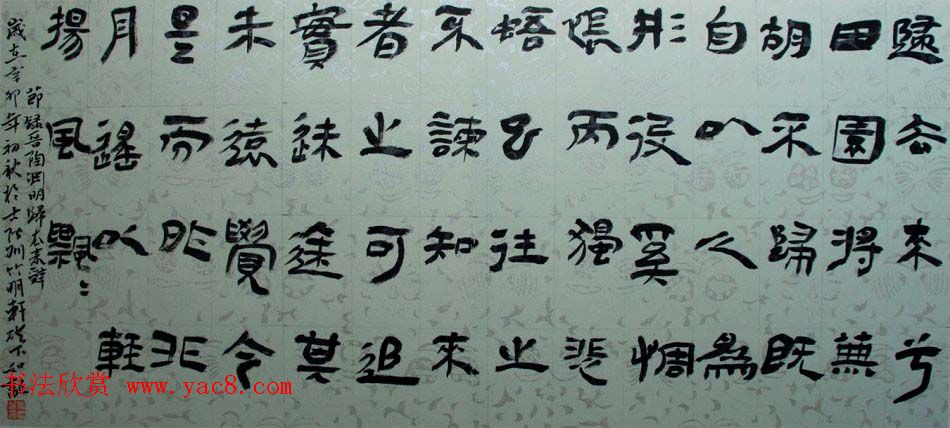 歸去來兮
田園將蕪
胡不歸既
自以心為
形役奚惆
悵而獨悲
悟已往之
不諫知來
者之可追
實迷途其
未遠覺今
是而昨非
舟遙以輕
揚風飄〻
節錄晉陶淵明歸去來辭
歲在辛卯年初秋於 州竹明軒
书法欣赏 www.yac8.com